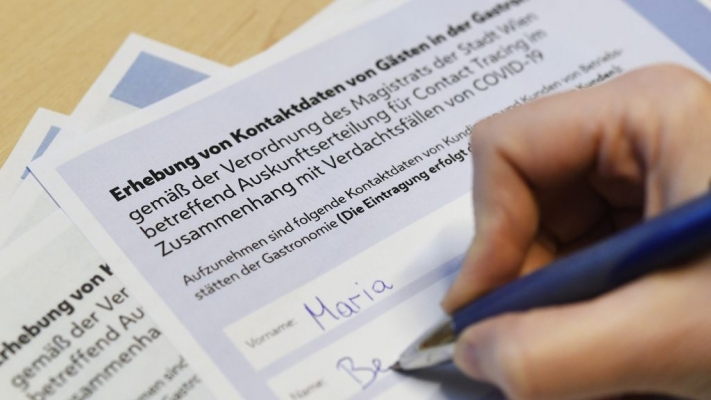 Erhebung von Kontaktdaten von Gästen in der Gastron
gemäß der Verordnung des Magistrats der Stadt Wien
betreffend Auskunftserteilung für Contact Tracing im
Zusammenhang mit Verdachtsfällen von COVID-19
Aufzunehmen sind folgende Kontaktdaten von Kundinnen und Kunden von Betriebs-
stätten der Gastronomie (Die Eintragung erfolgt Kunden):
Vorname: Maria
Name: Be
rhebung von K
gemäß der Ver
betreffend Au
usammenha
men sind